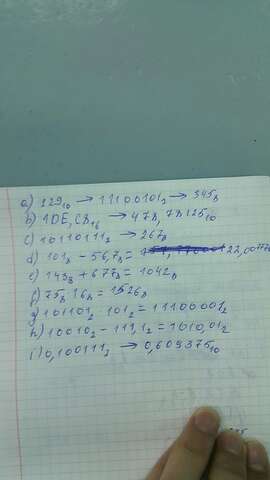 а) 229₁₀ → 11100101₂ → 345₈
b) 1DE,C8₁₆ → 478,78125₁₀
c) 10110111₂ → 267₈
d) 101₈ - 56,7₈ = 22,00
e) 143₈ + 677₈ = 1042₈
f) 75₈ · 16₈ = 1526₈
g) 101101₂ · 101₂ = 11100001₂
h) 10010₂ - 111,1₂ = 1010,01₂
i) 0,100111₂ → 0,609375₁₀